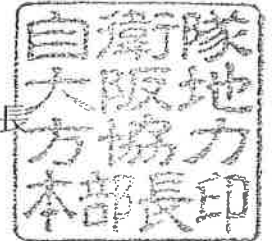 長
自衛隊
大阪地
方協力
本部長印